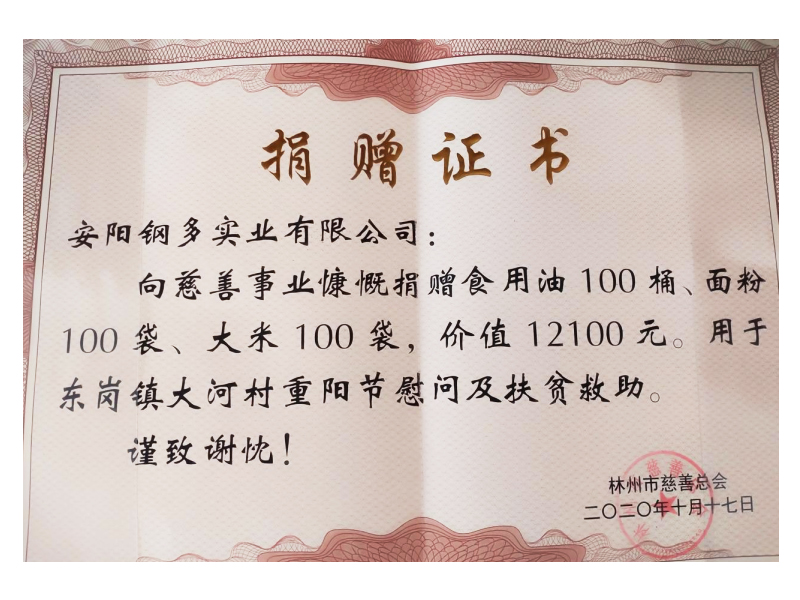 捐赠证书
安阳钢多实业有限公司：
向慈善事业慷慨捐赠食用油100桶、面粉
100袋、大米100袋，价值12100元。用于
东岗镇大河村重阳节慰问及扶贫救助。
谨致谢忱！
林州市慈善总会
二〇二〇年十月十七日